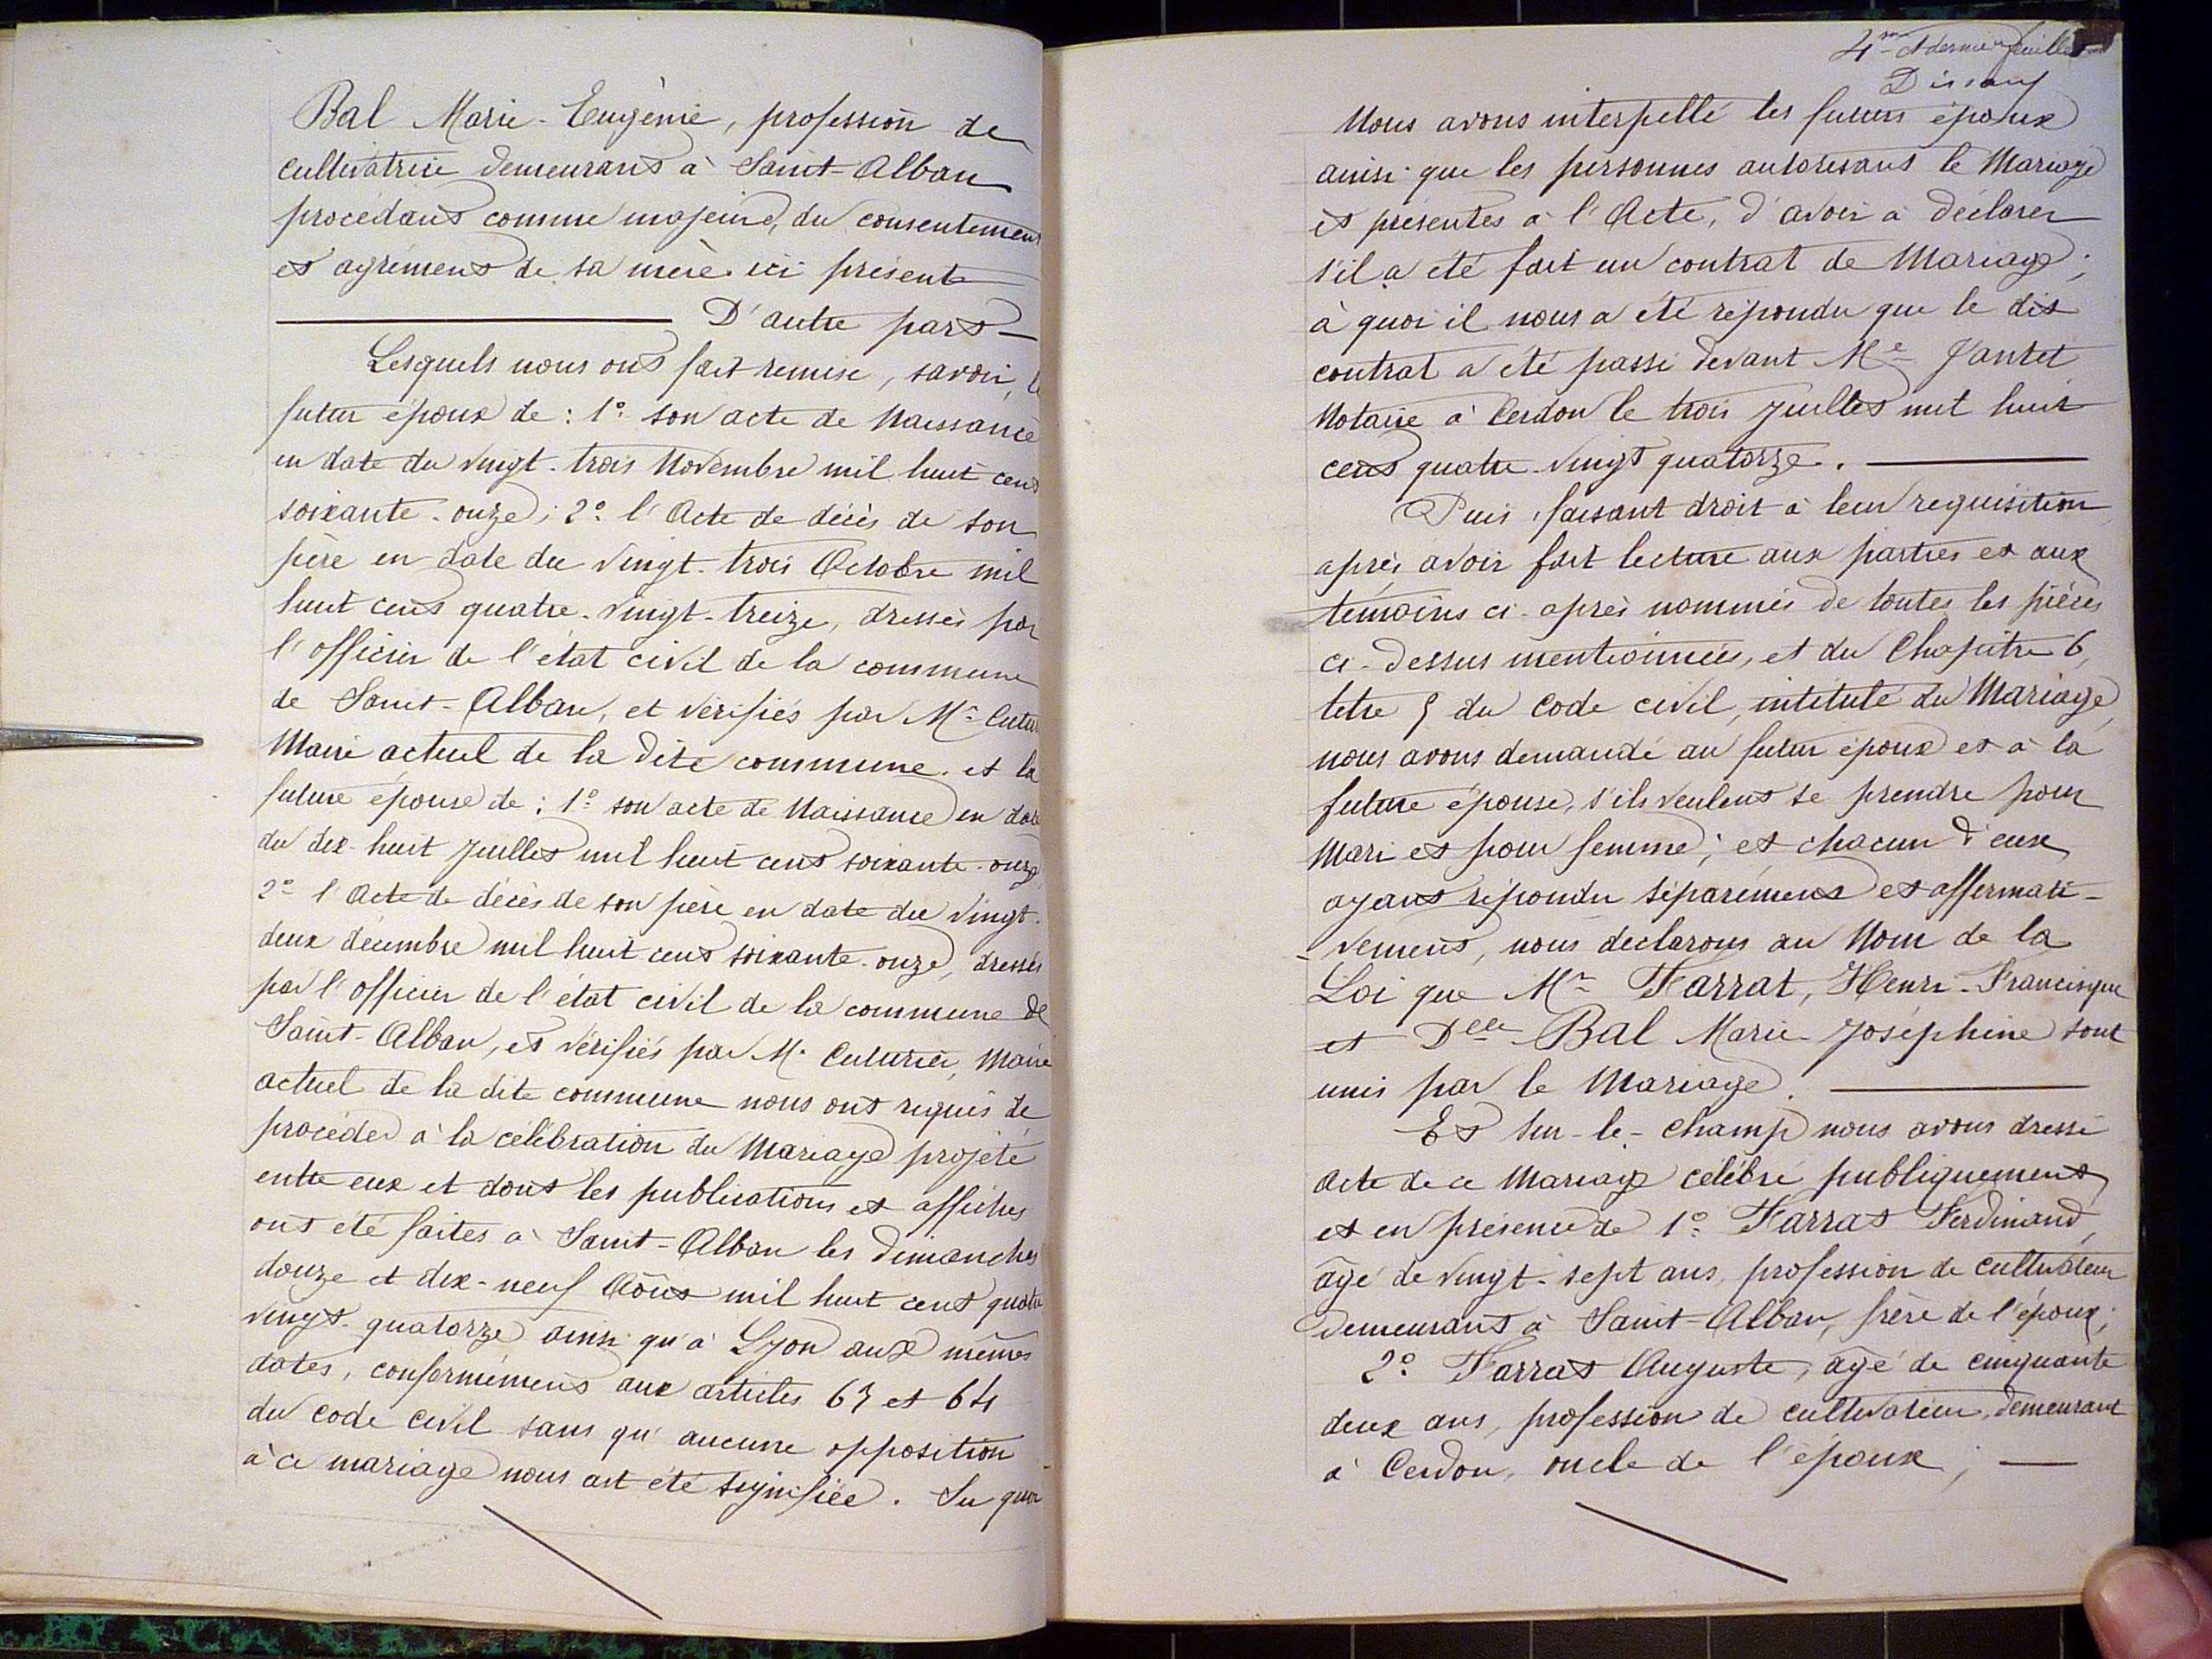 Bal Marie-Eugènie, profession de
cultivatrice demeurant à Saint-Alban
procédant comme majeure, du consentement
et agrément de sa mère ici présente
D'autre part
Lesquels nous ont fait remise, savoir, le
futur époux de : 1° son acte de Naissance
en date du vingt-trois Novembre mil huit cent
soixante-onze ; 2° l'Acte de décès de son
père en date du vingt-trois Octobre mil
huit cent quatre-vingt-treize, dressés par
l'officier de l'état civil de la commune
de Saint-Alban, et vérifiés par Mr
Maire actuel de la dite commune. et la
future épouse de : 1° son acte de Naissance en date
du dix-huit Juillet mil huit cent soixante-onze
2° l'Acte de décès de son père en date du vingt-
deux décembre mil huit cent soixante-onze, dressés
par l'officier de l'état civil de la commune de
Saint-Alban, et vérifiés par M. Cuturier, Maire
actuel de la dite commune nous ont requis de
procéder à la célébration du Mariage projeté
entre eux et dont les publications et affiches
ont été faites à Saint-Alban les dimanches
douze et dix-neuf Août mil huit cent quatre
vingt-quatorze ainsi qu'à Lyon aux mêmes
dates, conformément aux articles 63 et 64
du code civil sans qu'aucune opposition
à ce mariage nous ait été signifiée. Su quoi
4me et dernier feuillet
Nous avons interpellé les futurs époux
ainsi que les personnes autorisant le Mariage
et présentes à l'Acte, d'avoir à déclarer
s'il a été fait un contrat de Mariage ;
à quoi il nous a été répondu que le dit
contrat a été passé devant Me Jantet
Notaire à Cerdon le trois Juillet mil huit
cent quatre-vingt quatorze.
Puis, faisant droit à leur requisition
après avoir fait lecture aux parties et aux
témoins ci-après nommés de toutes les pièces
ci-dessus mentionnées, et du Chapitre 6,
titre 5 du Code civil, intitulé du Mariage,
nous avons demandé au futur époux et à la
future épouse, s'ils veulent se prendre pour
Mari et pour femme ; et chacun d'eux
ayant répondu séparément et affirmati-
-vement, nous déclarons au Nom de la
Loi que Mr Farrat, Henri-Francisque
et Delle Bal Marie-Joséphine sont
unis par le Mariage.
Et sur-le-champ nous avons dressé
acte de ce Mariage célébré publiquement
et en présence de 1° Farrat Ferdinand,
âgé de vingt-sept ans, profession de cultivateur
demeurant à Saint-Alban, frère de l'époux ;
2° Farrat Auguste, âgé de cinquante
deux ans, profession de cultivateur, demeurant
à Cerdon, oncle de l'époux ;